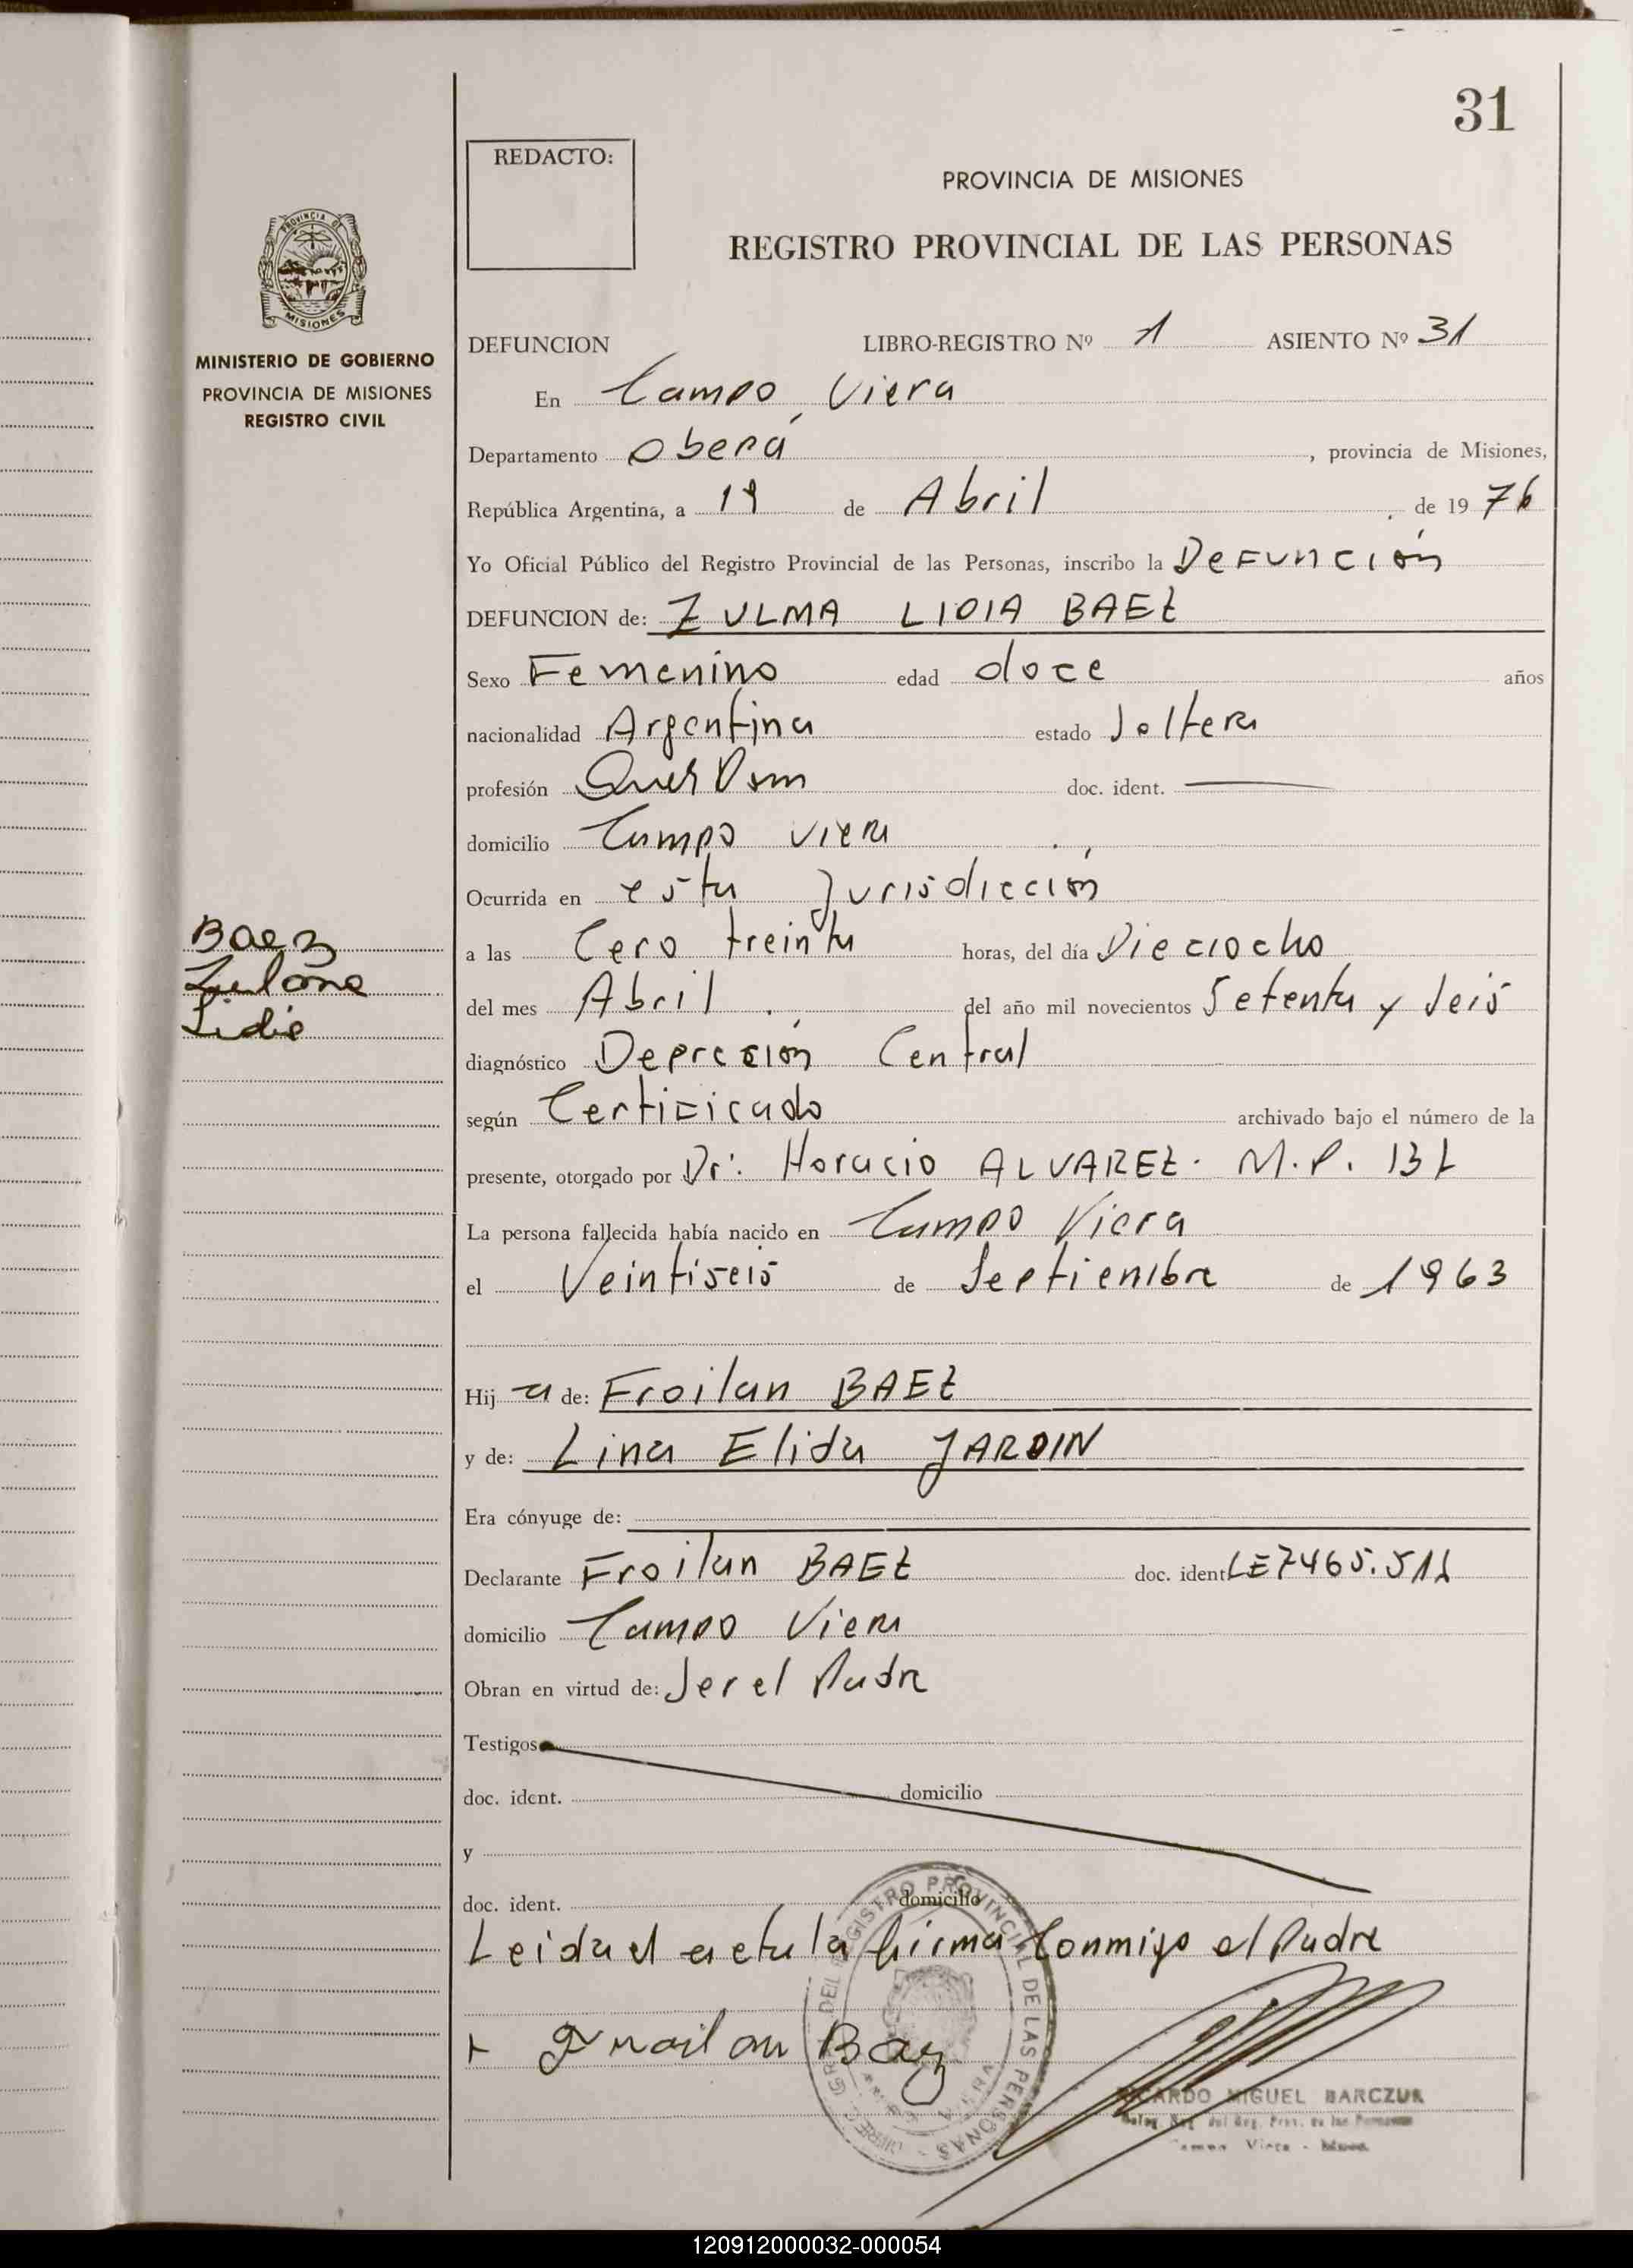 31
REDACTO:
PROVINCIA DE MISIONES
REGISTRO PROVINCIAL DE LAS PERSONAS
PROVINCIA DE
MISIONES
MINISTERIO DE GOBIERNO
PROVINCIA DE MISIONES
REGISTRO CIVIL
DEFUNCION LIBRO-REGISTRO Nº 1 ASIENTO Nº 31
En Campo Viera
Departamento Oberá, provincia de Misiones,
República Argentina, a 19 de Abril de 1976
Yo Oficial Público del Registro Provincial de las Personas, inscribo la Defunción
DEFUNCION de: ZULMA LIDIA BAEZ
Sexo Femenino edad doce años
nacionalidad Argentina estado Soltera
profesión Quer Dom doc. ident. —
domicilio Campo Viera
Ocurrida en esta Jurisdicción
a las Cero treinta horas, del día Dieciocho
del mes Abril del año mil novecientos Setenta y Seis
diagnóstico Depresión Central
según Certificado archivado bajo el número de la
presente, otorgado por Dr: Horacio ALVAREZ. M.P. 132
La persona fallecida había nacido en Campo Viera
el Veintiseis de Septiembre de 1963
Hija de: Froilan BAEZ
y de: Lina Elida JARDIN
Era cónyuge de:
Declarante Froilan BAEZ doc. ident LE7465.512
domicilio Campo Viera
Obran en virtud de: Ser el Padre
Testigos
doc. ident. domicilio
y
doc. ident. domicilio
Leida el acta la firma Conmigo el Padre
Froilan Baez
Baez
Zulma
Lidia
REGISTRO PROVINCIAL DE LAS PERSONAS
RICARDO MIGUEL BARCZUK
Campo Viera
120912000032-000054